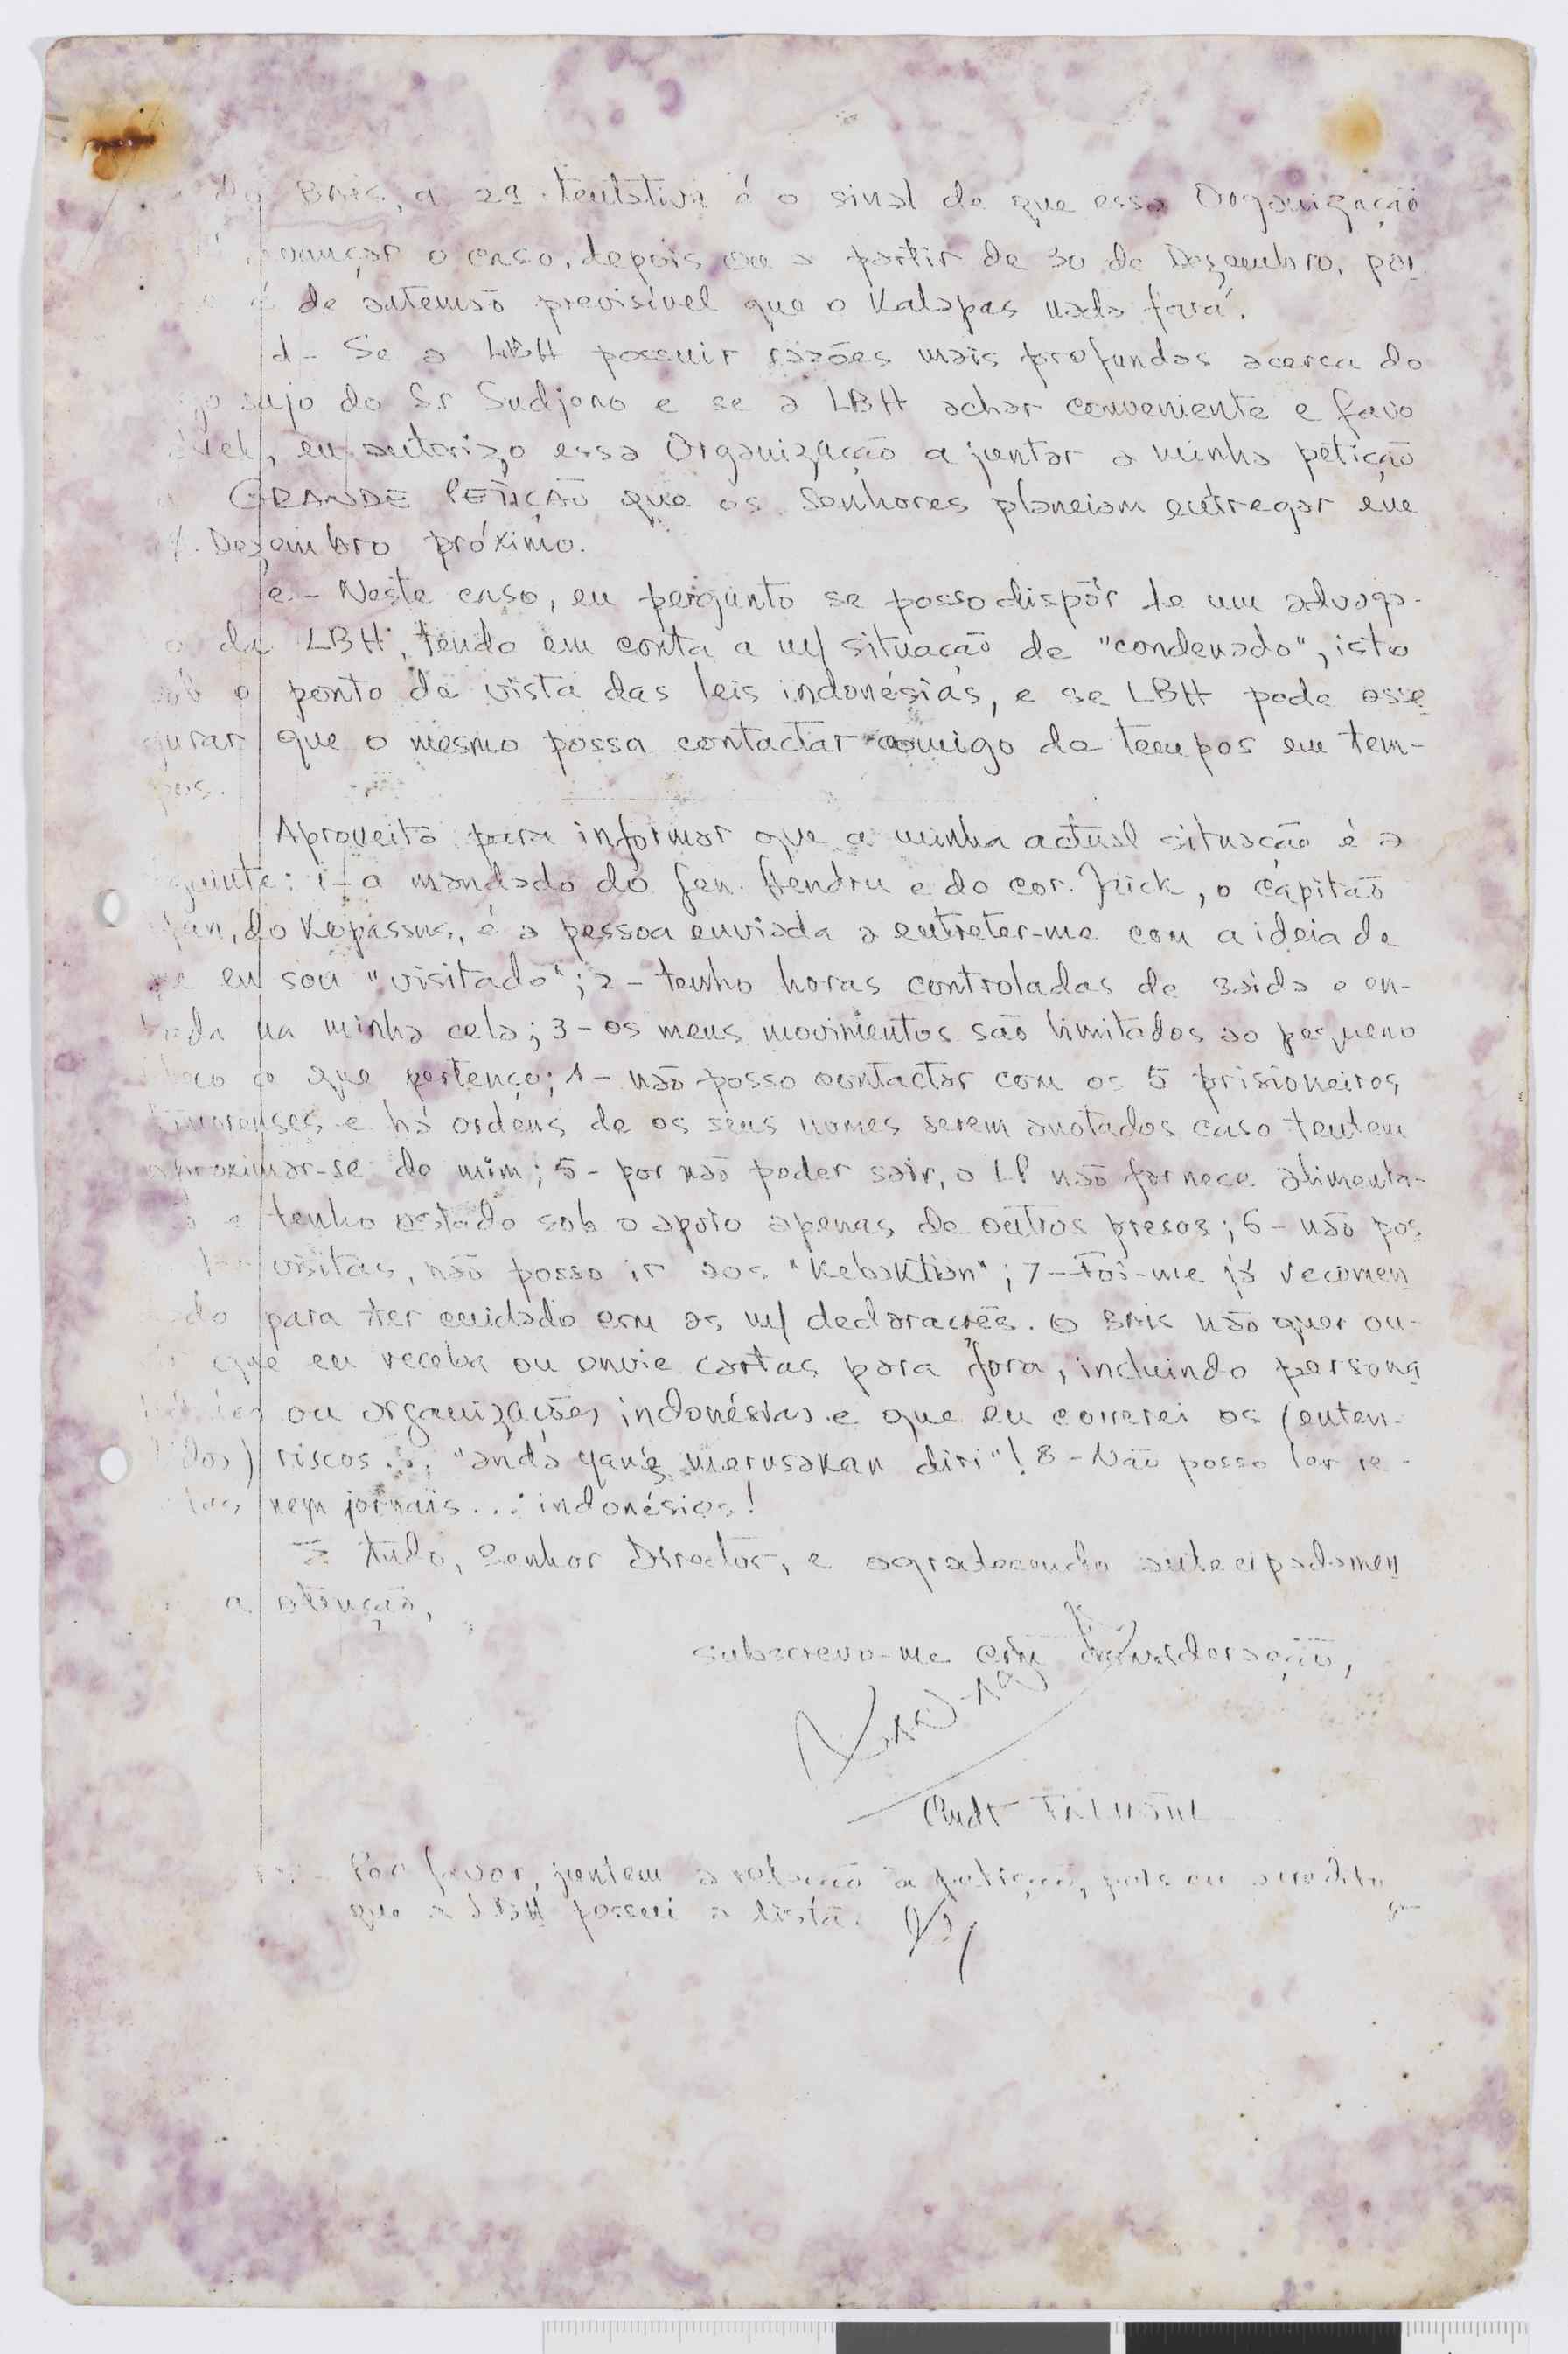 BAIS, a 2ª tentativa é o sinal de que essa Organização
avançar o caso, depois ou a partir de 30 de Dezembro, por
é de antemão previsível que o Kalapas nada fará.
d- Se a LBH possuir razões mais profundas acerca do
sujo do Sr Sudjono e se a LBH achar conveniente e favo
ável, eu autorizo essa Organização a juntar a minha petição
GRANDE PETIÇÃO que os Senhores planeiam entregar em
Dezembro próximo.
e.- Neste caso, eu pergunto se posso dispôr de um advoga-
o da LBH, tendo em conta a m/ situação de "condenado", isto
sob o ponto de vista das leis indonésias, e se LBH pode asse
gurar que o mesmo possa contactar comigo de tempos em tem-
pos.
Aproveito para informar que a minha actual situação é a
guinte: 1- a mandado do Gen. Hendru e do cor. Jaick, o capitão
do Kopassus, é a pessoa enviada a entreter-me com a ideia de
que eu sou "visitado"; 2- tenho horas controladas de saída e en-
trada na minha cela; 3- os meus movimentos são limitados ao pequeno
bloco a que pertenço; 4- não posso contactar com os 5 prisioneiros
timorenses e há ordens de os seus nomes serem anotados caso tentem
aproximar-se de mim; 5- por não poder sair, o LP não fornece alimenta-
e tenho estado sob o apoio apenas de outros presos; 6- não pos
visitas, não posso ir aos "Kebaktian"; 7- Foi-me já recomen
do para ter cuidado com as m/ declarações. O BAIS não quer ou-
que eu receba ou envie cartas para fora, incluindo persona
ou organizações indonésias e que eu correrei os (enten-
didos) riscos "anda yang merusakan diri"! 8- Não posso ler re-
tas nem jornais... indonésios!
É tudo, Senhor Director, e agradecendo antecipadamen
a atenção,
subscrevo-me com consideração,
Cmdt
Por favor, juntem a relação à petição, pois eu acredito
que a LBH possui a lista.